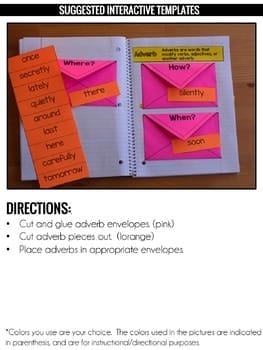 SUGGESTED INTERACTIVE TEMPLATES
once
secretly
lately
quietly
around
last
here
carefully
tomorrow
Where?
there
Adverb
Adverbs are words that
modify verbs, adjectives, or
another adverb.
How?
silently
When?
soon
DIRECTIONS:
• Cut and glue adverb envelopes. (pink)
• Cut adverb pieces out. (lorange)
• Place adverbs in appropriate envelopes.
*Colors you use are your choice. The colors used in the pictures are indicated
in parenthesis, and are for instructional/directional purposes.